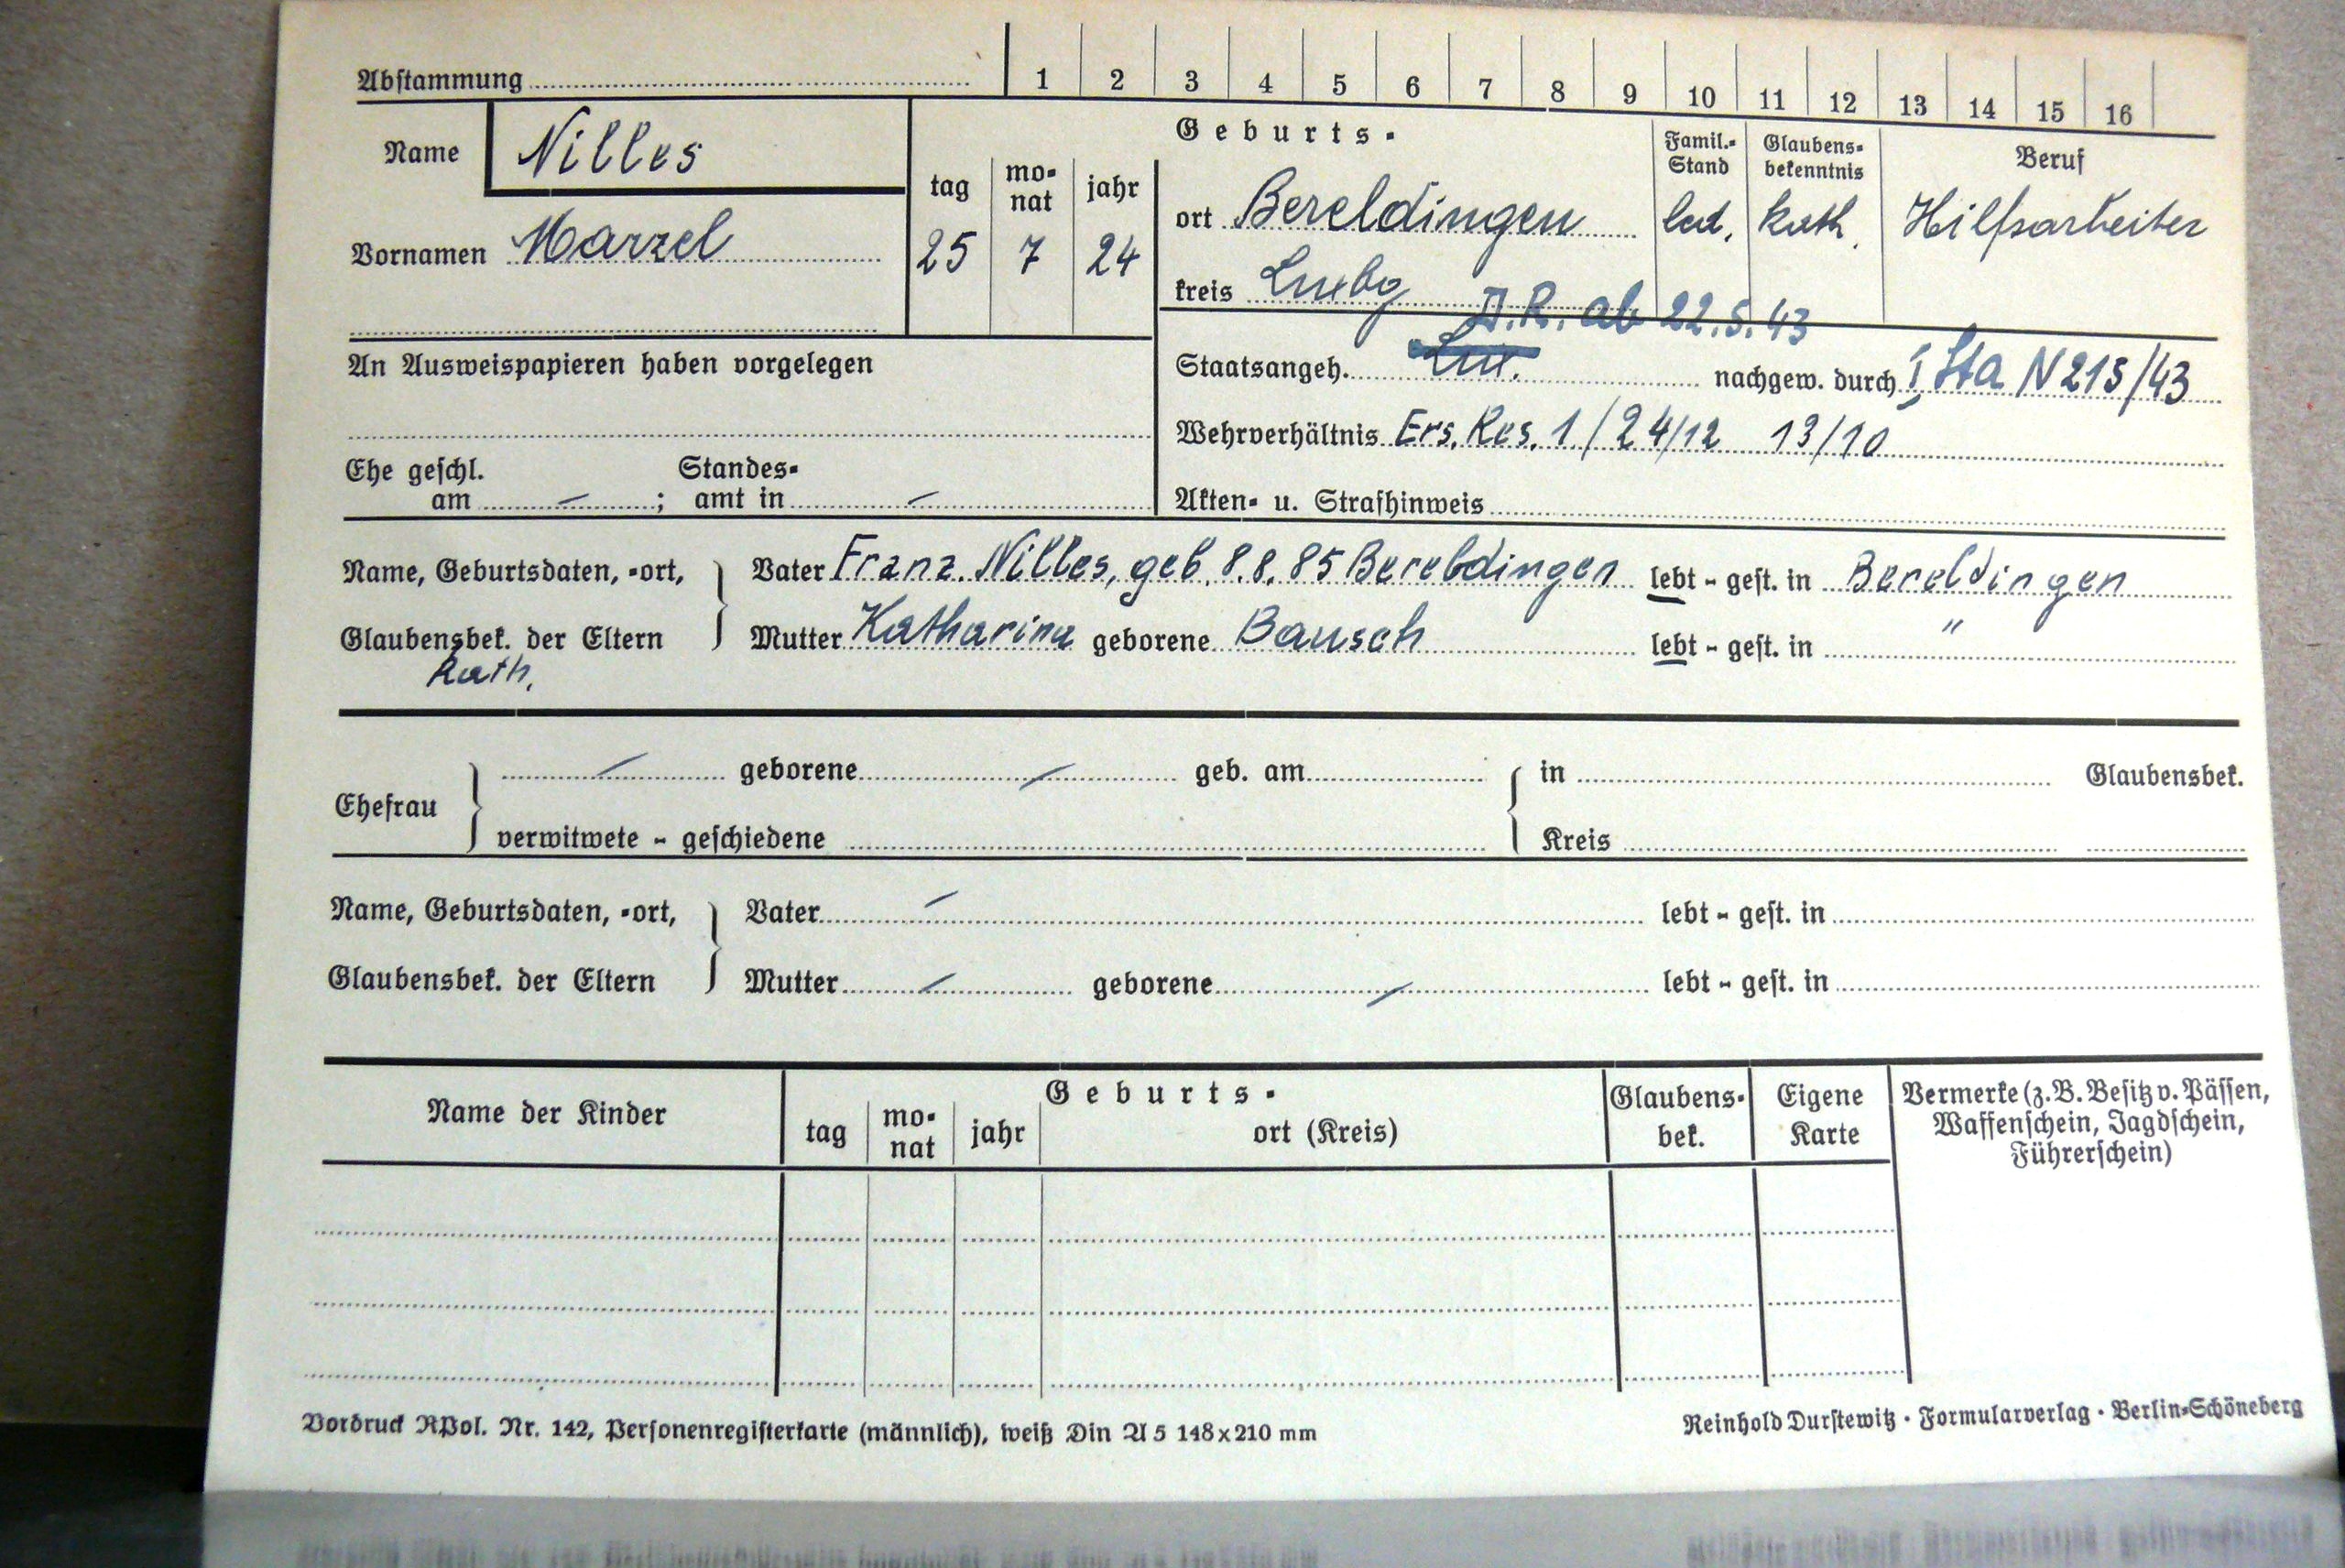 Abstammung 1 2 3 4 5 6 7 8 9 10 11 12 13 14 15 16
Name Nilles
Geburts-
tag monat jahr
Famil.-Stand
Glaubensbekenntnis
Beruf
Vornamen Marzel 25 7 24 ort Bereldingen led. kath. Hilfsarbeiter
kreis Luxbg
D.R. ab 22.5.43
An Ausweispapieren haben vorgelegen
Staatsangeh. Lux. nachgew. durch I Sta N 215/43
Wehrverhältnis Ers. Res. 1 / 24/12 13/10
Ehe geschl. am – ; Standesamt in –
Akten- u. Strafhinweis
Name, Geburtsdaten, -ort, Vater Franz. Nilles, geb. 8.8.85 Bereldingen lebt - gest. in Bereldingen
Glaubensbek. der Eltern Mutter Katharina geborene Bausch lebt - gest. in "
Kath.
Ehefrau – geborene – geb. am in Glaubensbek.
verwitwete - geschiedene Kreis
Name, Geburtsdaten, -ort, Vater – lebt - gest. in
Glaubensbek. der Eltern Mutter – geborene – lebt - gest. in
Name der Kinder
Geburts-
tag monat jahr ort (Kreis)
Glaubensbek.
Eigene Karte
Vermerke (z. B. Besitz v. Pässen,
Waffenschein, Jagdschein,
Führerschein)
Vordruck RPol. Nr. 142, Personenregisterkarte (männlich), weiß Din A 5 148 x 210 mm
Reinhold Durstewitz · Formularverlag · Berlin-Schöneberg